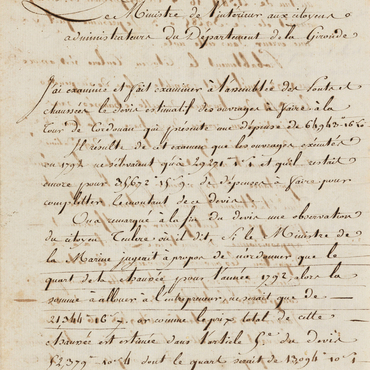 Le Ministre de l'interieur aux citoyens
administrateurs du Département de la Gironde
J'ai examiné et fait examiner à l'assemblée des Ponts et
chaussées le devis estimatif des ouvrages à faire à la
Tour de Cordouan qui presente une dépense de
Il résulte de cet examen que les ouvrages exécutés
en 1792 ne s'élevaient qu'à et qu'il restait
encore pour de dépenses à faire pour
completter le montant de ce devis.
On a remarqué à la fin du devis une observation
du citoyen Teulere où il dit, si le Ministre de
la Marine jugeoit à propos de n'ordonner que le
quart de la chaussée pour l'année 1792, alors la
somme à allouer à l'entrepreneur ne serait que de
21344 car comme le prix total de cette
chaussée est estimée dans l'article 5e du devis
52,379 dont le quart serait de 13,094